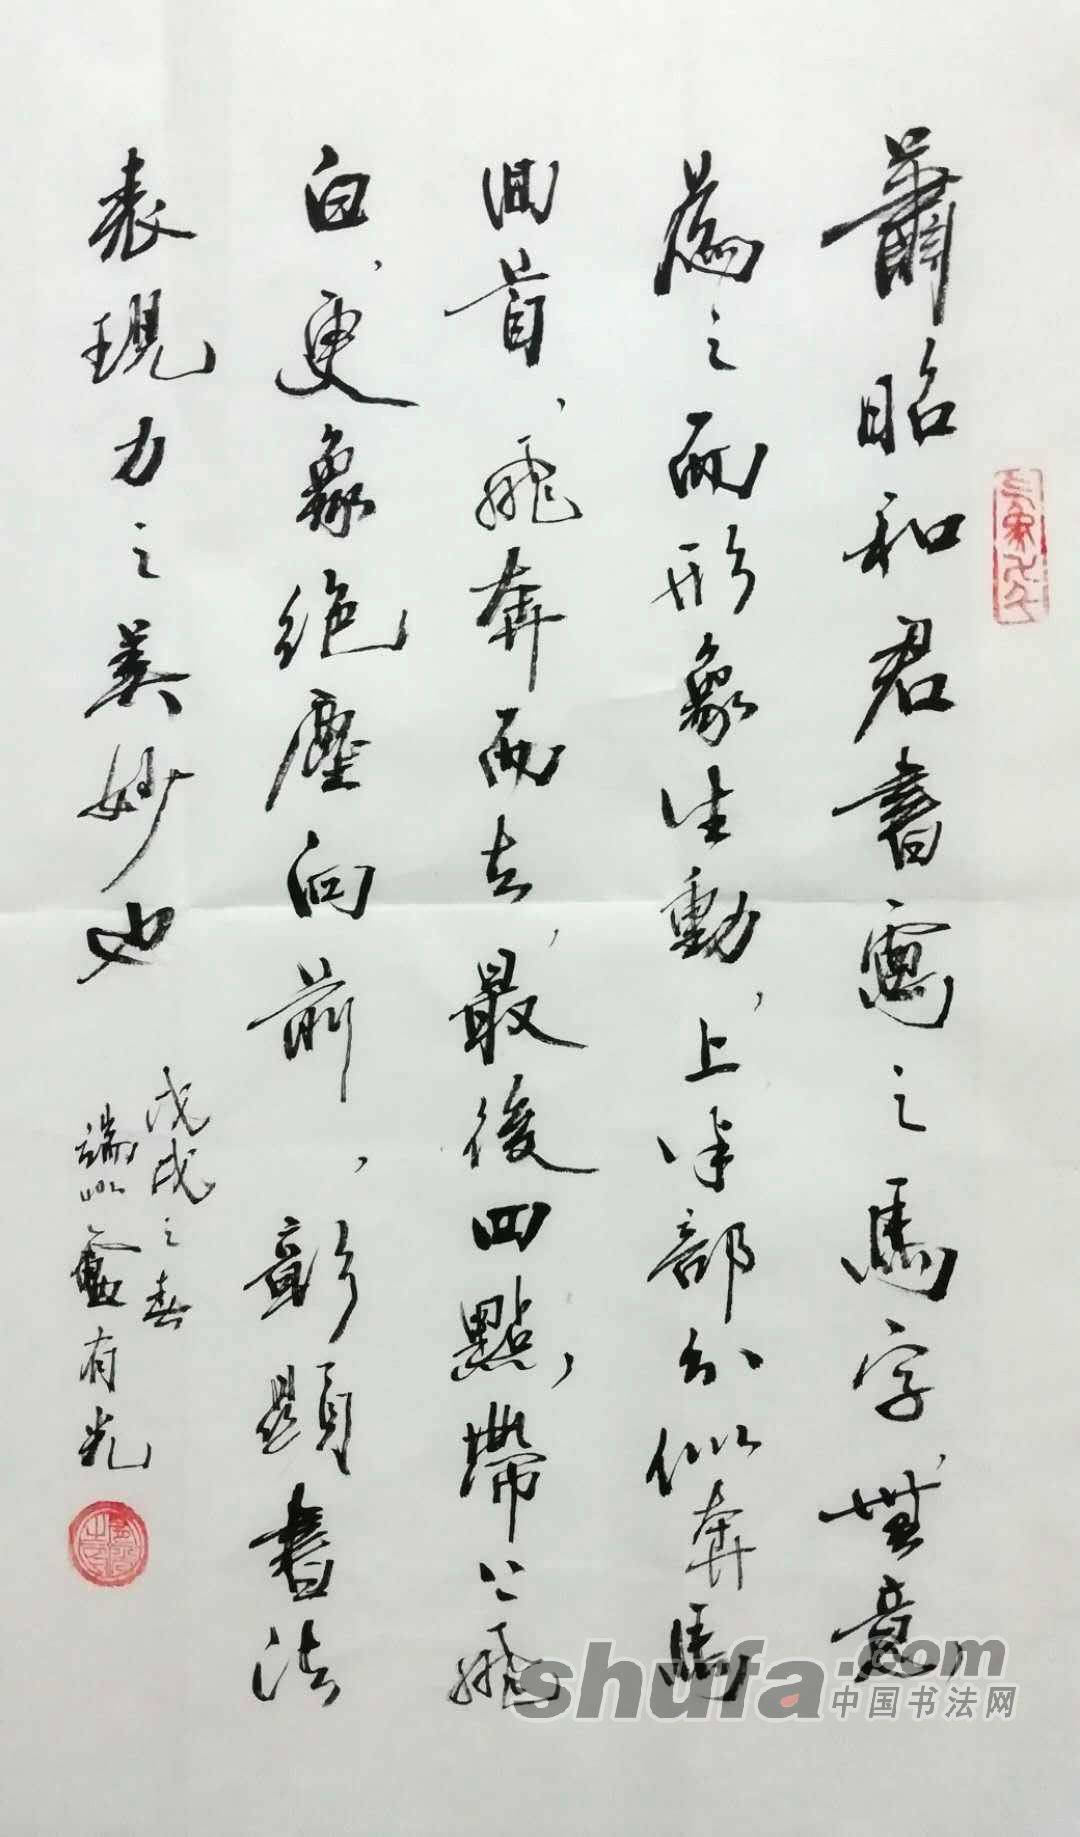 蕭昭和君書寫之馬字，無意，
為之而形象生動，上半部分似奔馬
回首，飛奔而去，最後四點，帶以飛
白，更象絕塵向前，彰顯書法
表現力之美妙也
戊戌之春
端州
有光
shufa.com
中国书法网